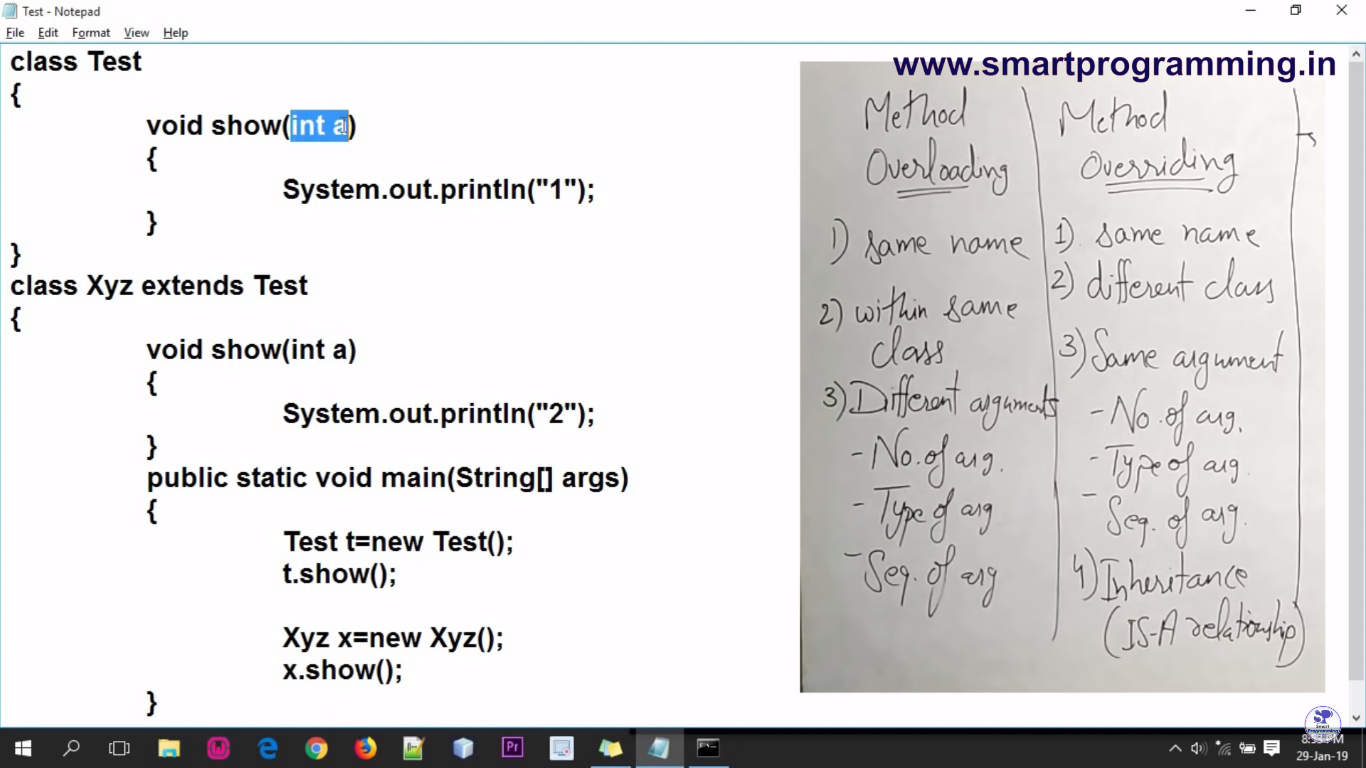 Test - Notepad
File Edit Format View Help
www.smartprogramming.in
class Test
{
void show(int a)
{
System.out.println("1");
}
}
class Xyz extends Test
{
void show(int a)
{
System.out.println("2");
}
public static void main(String[] args)
{
Test t=new Test();
t.show();
Xyz x=new Xyz();
x.show();
}
Method
Overloading
1) same name
2) within same
class
3) Different arguments
- No. of arg.
- Type of arg
- Seq. of arg
Method
Overriding
1). same name
2) different class
3) Same argument
- No. of arg.
- Type of arg.
- Seq. of arg.
4) Inheritance
(IS-A relationship)
Smart
Programming
Pr
29-Jan-19